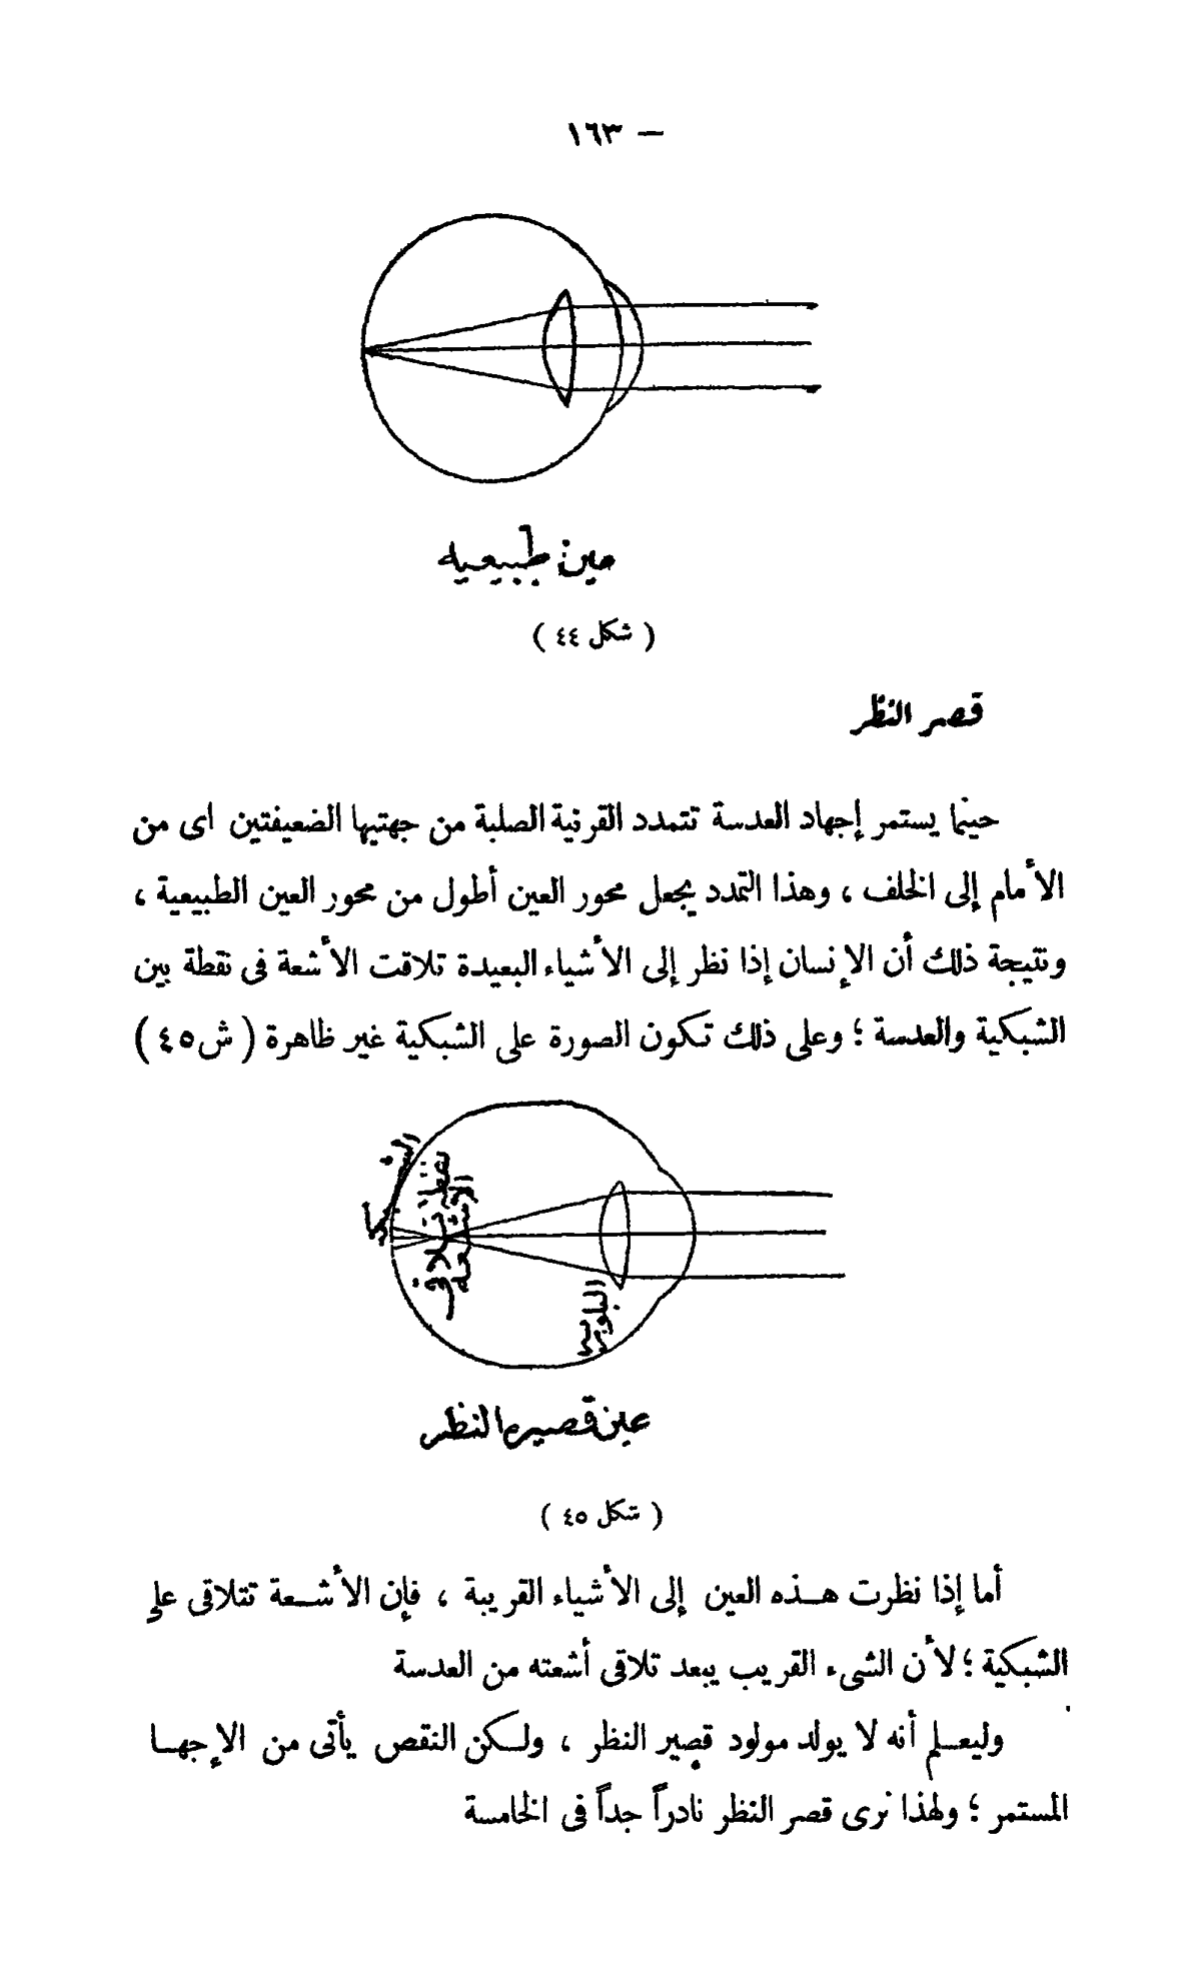 ١٦٣ —
عين طبيعيه
( شكل ٤٤ )
قصر النظر
حينما يستمر إجهاد العدسة تتمدد القرنية الصلبة من جهتيها الضعيفتين اى من
الأمام إلى الخلف ، وهذا التمدد يجعل محور العين أطول من محور العين الطبيعية ،
ونتيجة ذلك أن الإنسان إذا نظر إلى الأشياء البعيدة تلاقت الأشعة فى نقطة بين
الشبكية والعدسة ؛ وعلى ذلك تكون الصورة على الشبكية غير ظاهرة ( ش٤٥ )
نقطة تلاقى
الأشعه
عين قصيره النظر
( شكل ٤٥ )
أما إذا نظرت هـذه العين إلى الأشياء القريبة ، فإن الأشـعة تتلاقى على
الشبكية ؛ لأن الشىء القريب يبعد تلاقى أشعته من العدسة
وليعـلم أنه لا يولد مولود قصير النظر ، ولـكن النقص يأتى من الإجهـا
المستمر ؛ ولهذا نرى قصر النظر نادراً جداً فى الخامسة